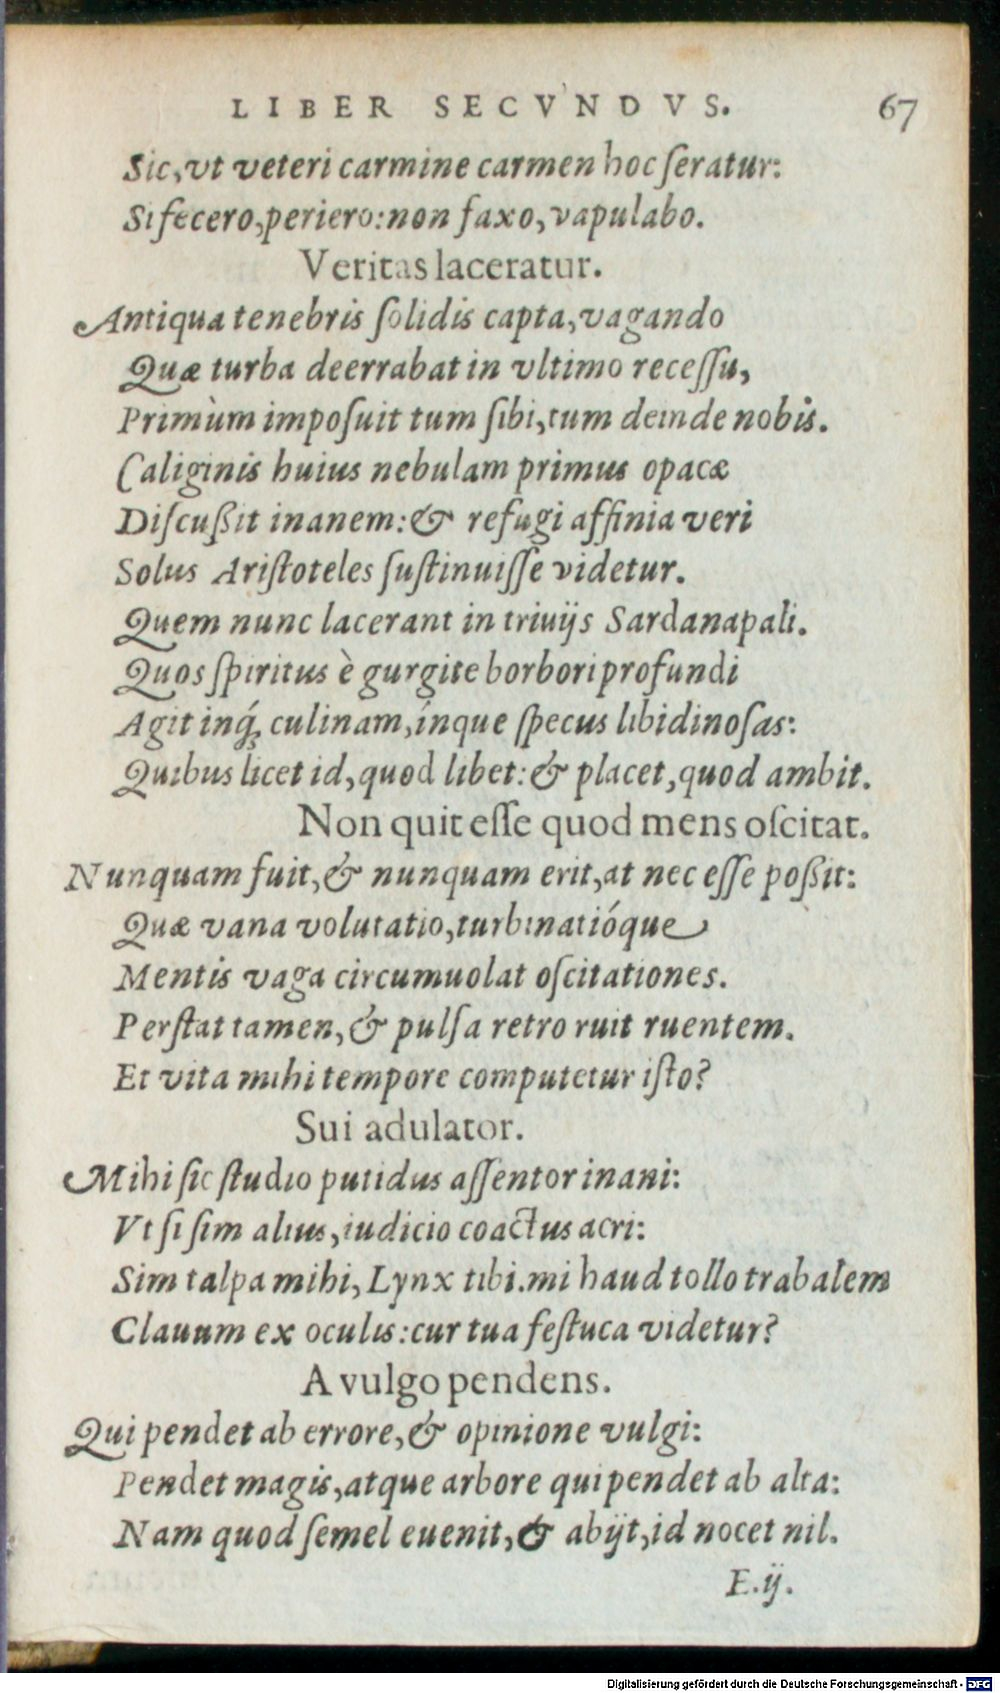 LIBER SECVNDVS. 67
Sic, vt veteri carmine carmen hoc ſeratur:
Si fecero, periero: non faxo, vapulabo.
Veritas laceratur.
Antiqua tenebris ſolidis capta, vagando
Quæ turba deerrabat in vltimo receſſu,
Primùm impoſuit tum ſibi, tum deinde nobis.
Caliginis huius nebulam primus opacæ
Diſcußit inanem: & refugi affinia veri
Solus Ariſtoteles ſuſtinuiſſe videtur.
Quem nunc lacerant in triuijs Sardanapali.
Quos ſpiritus è gurgite borbori profundi
Agit inq́; culinam, ínque ſpecus libidinoſas:
Quibus licet id, quod libet: & placet, quod ambit.
Non quit eſſe quod mens oſcitat.
Nunquam fuit, & nunquam erit, at nec eſſe poßit:
Quæ vana volutatio, turbinatióque
Mentis vaga circumuolat oſcitationes.
Perſtat tamen, & pulſa retro ruit ruentem.
Et vita mihi tempore computetur iſto?
Sui adulator.
Mihi ſic ſtudio putidus aſſentor inani:
Vt ſi ſim alius, iudicio coactus acri:
Sim talpa mihi, Lynx tibi. mi haud tollo trabalem
Clauum ex oculis: cur tua feſtuca videtur?
A vulgo pendens.
Qui pendet ab errore, & opinione vulgi:
Pendet magis, atque arbore qui pendet ab alta:
Nam quod ſemel euenit, & abijt, id nocet nil.
E.ij.
Digitalisierung gefördert durch die Deutsche Forschungsgemeinschaft - DFG